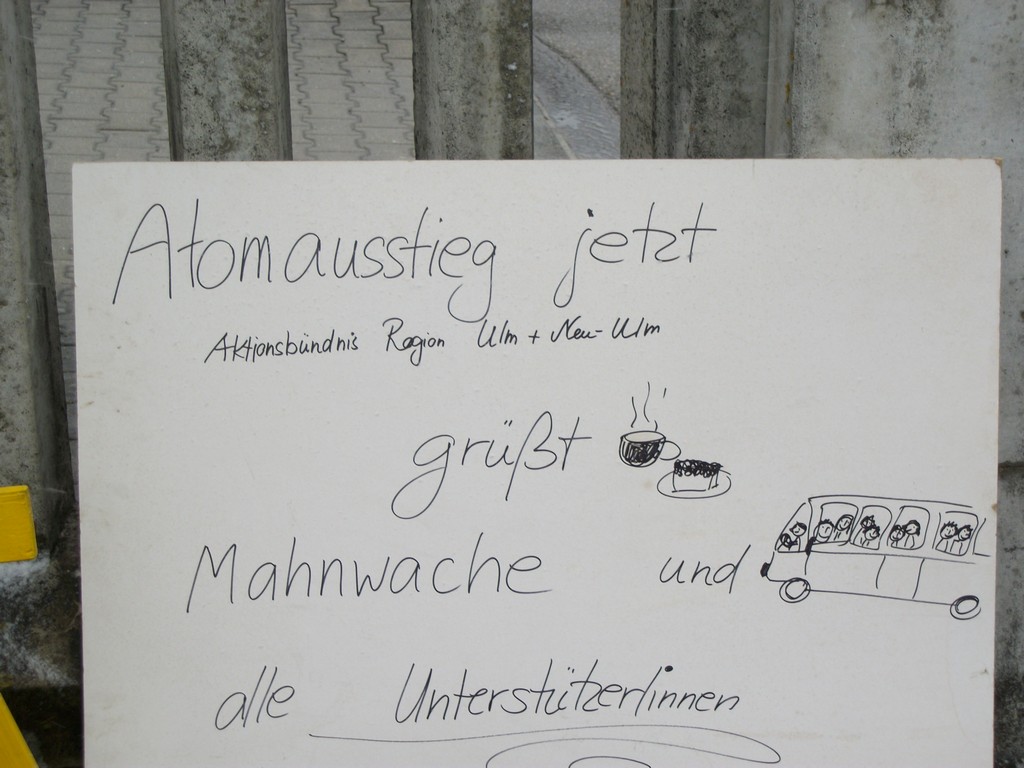 Atomausstieg jetzt
Aktionsbündnis Region Ulm + Neu-Ulm
grüßt
Mahnwache und
alle Unterstützer/innen